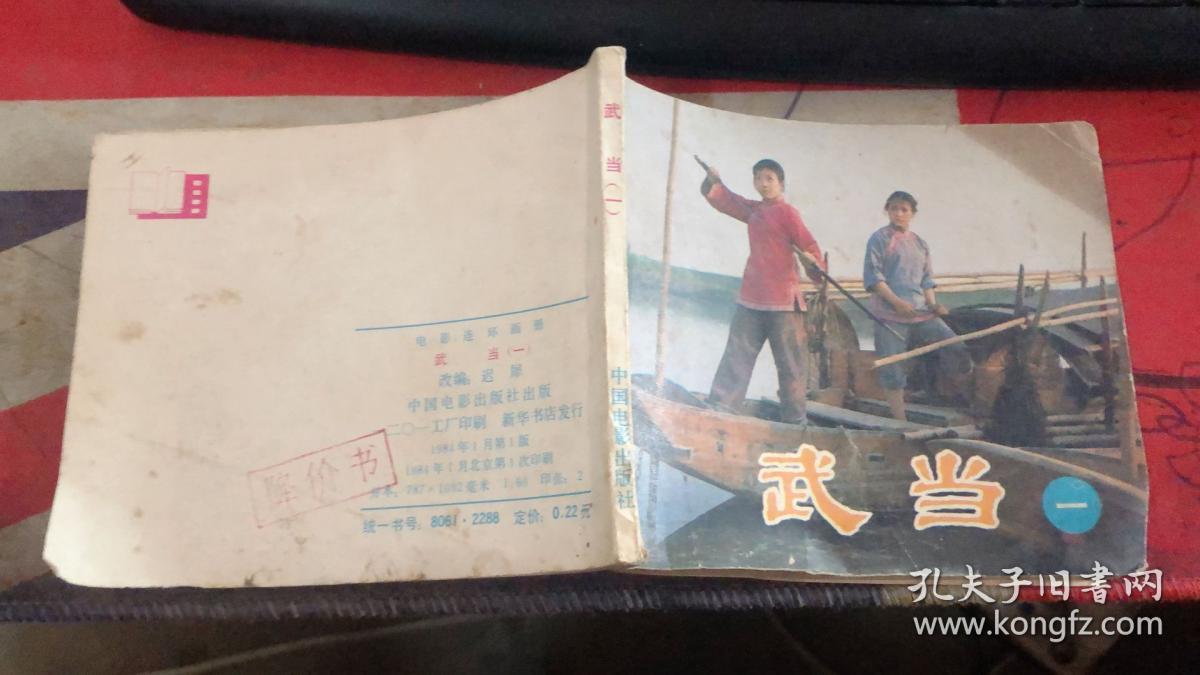 电影连环画册
武 当(一)
改编:迟犀
中国电影出版社出版
二〇一工厂印刷 新华书店发行
1984年1月第1版
1984年1月北京第1次印刷
开本:787×1092毫米 1/60 印张:2
统一书号:8061·2288 定价:0.22元
降价书
武当(一)
中国电影出版社
武当
一
孔夫子旧书网
www.kongfz.com